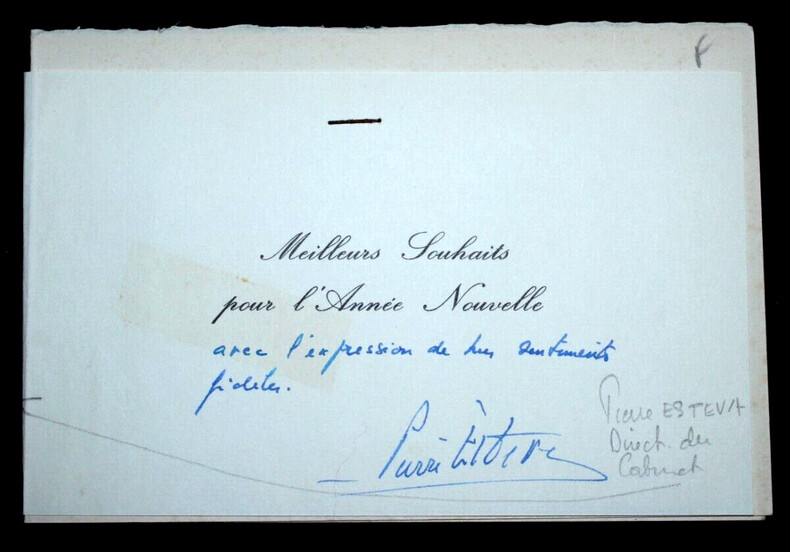 Meilleurs Souhaits
pour l'Année Nouvelle
avec l'expression de mes sentiments
fidèles.
Pierre Esteva
Pierre ESTEVA
Direct. du
Cabinet